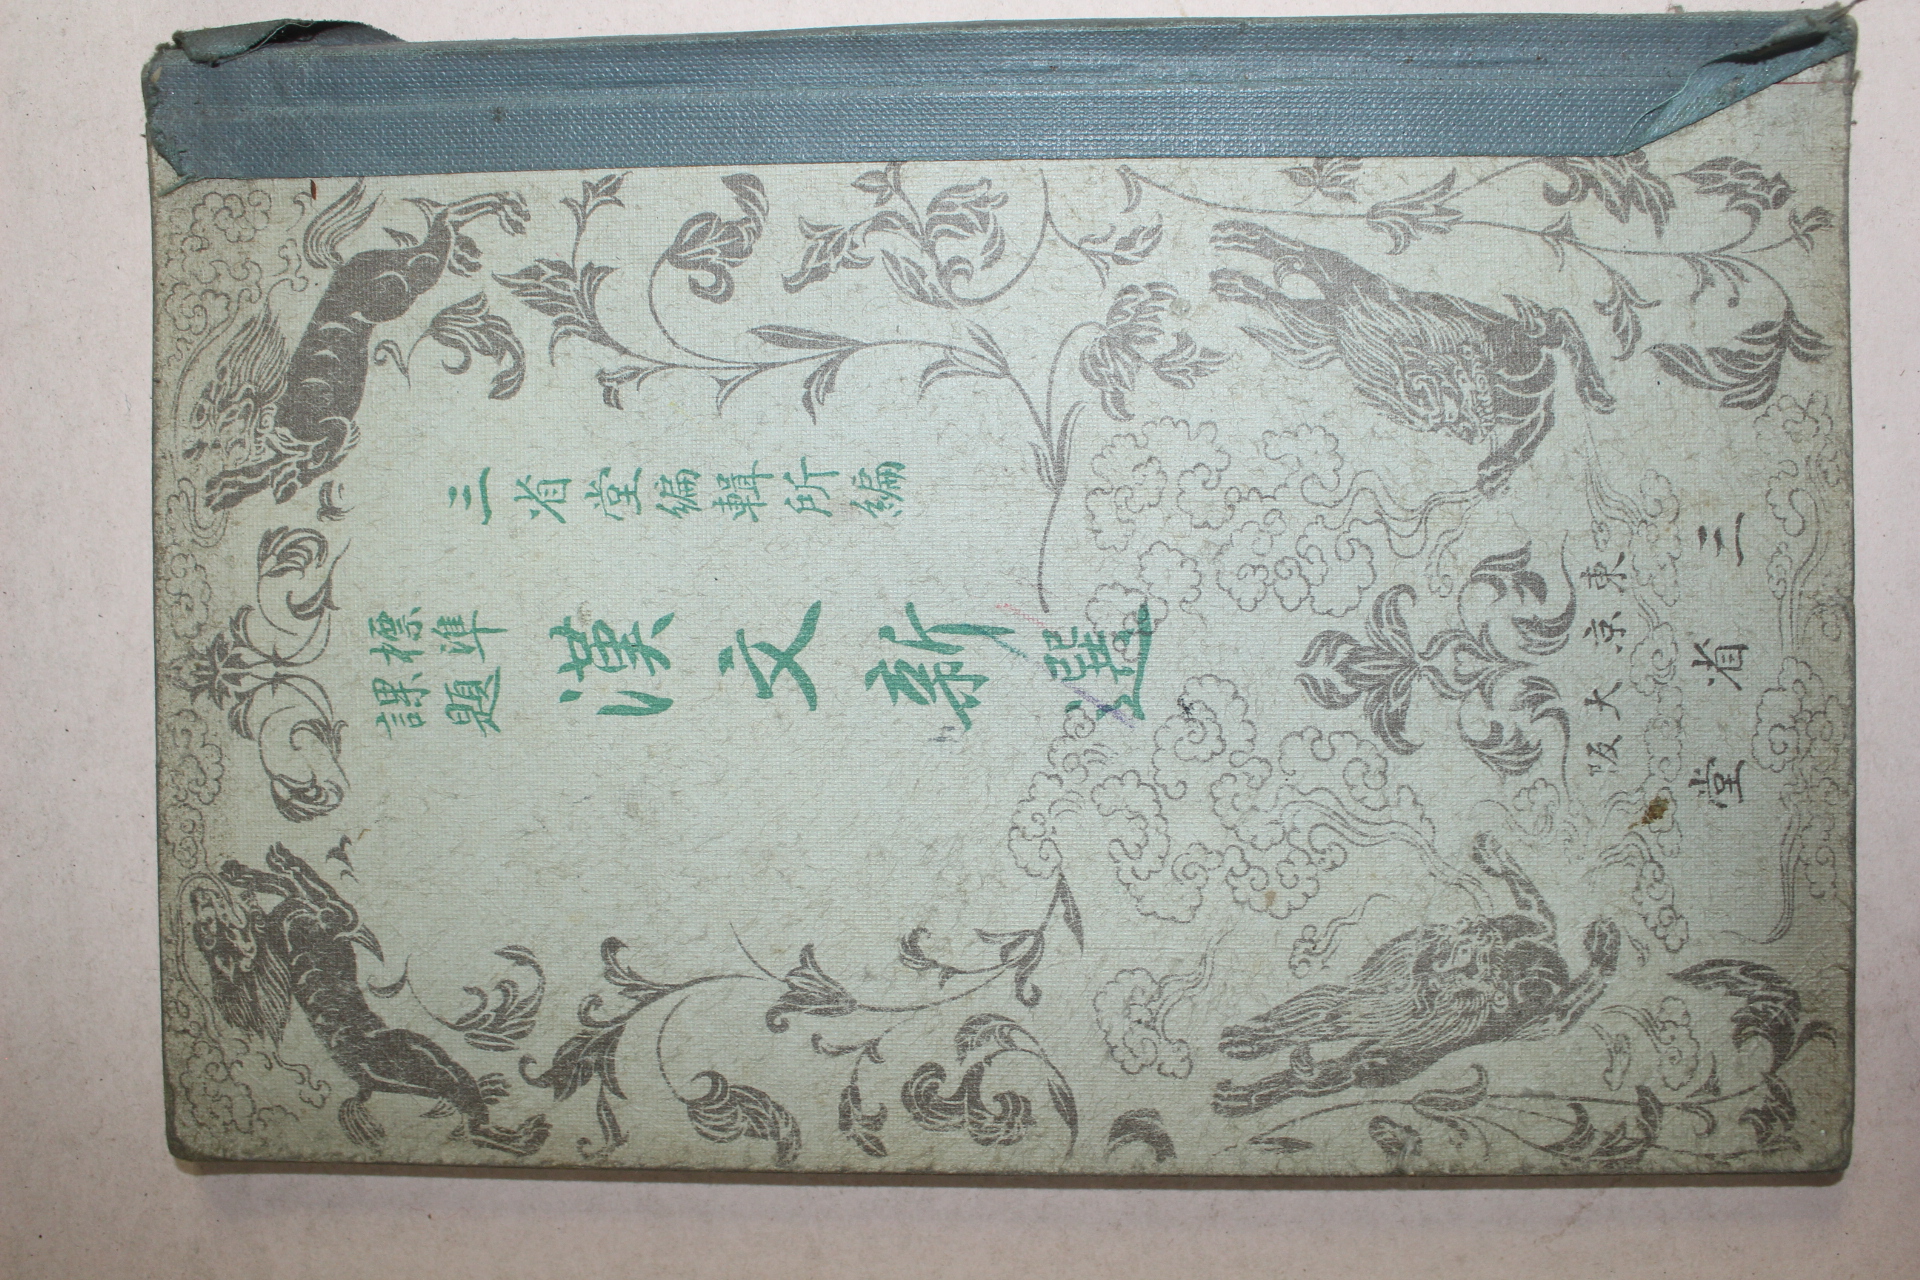 三省堂編輯所編
標準
課題
漢文新選
東京 大阪
三省堂